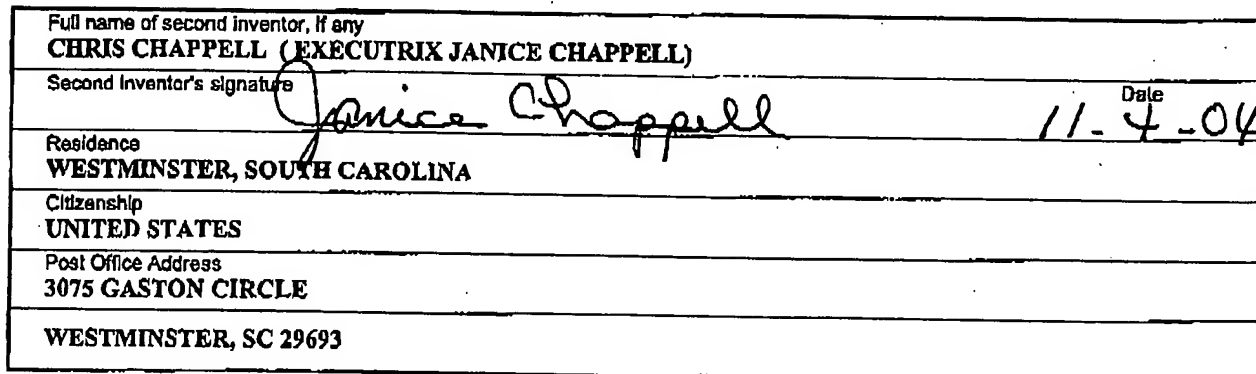 Full name of second inventor, if any
CHRIS CHAPPELL (EXECUTRIX JANICE CHAPPELL)
Second inventor's signature
Janice Chappell
Date
11-4-04
Residence
WESTMINSTER, SOUTH CAROLINA
Citizenship
UNITED STATES
Post Office Address
3075 GASTON CIRCLE
WESTMINSTER, SC 29693